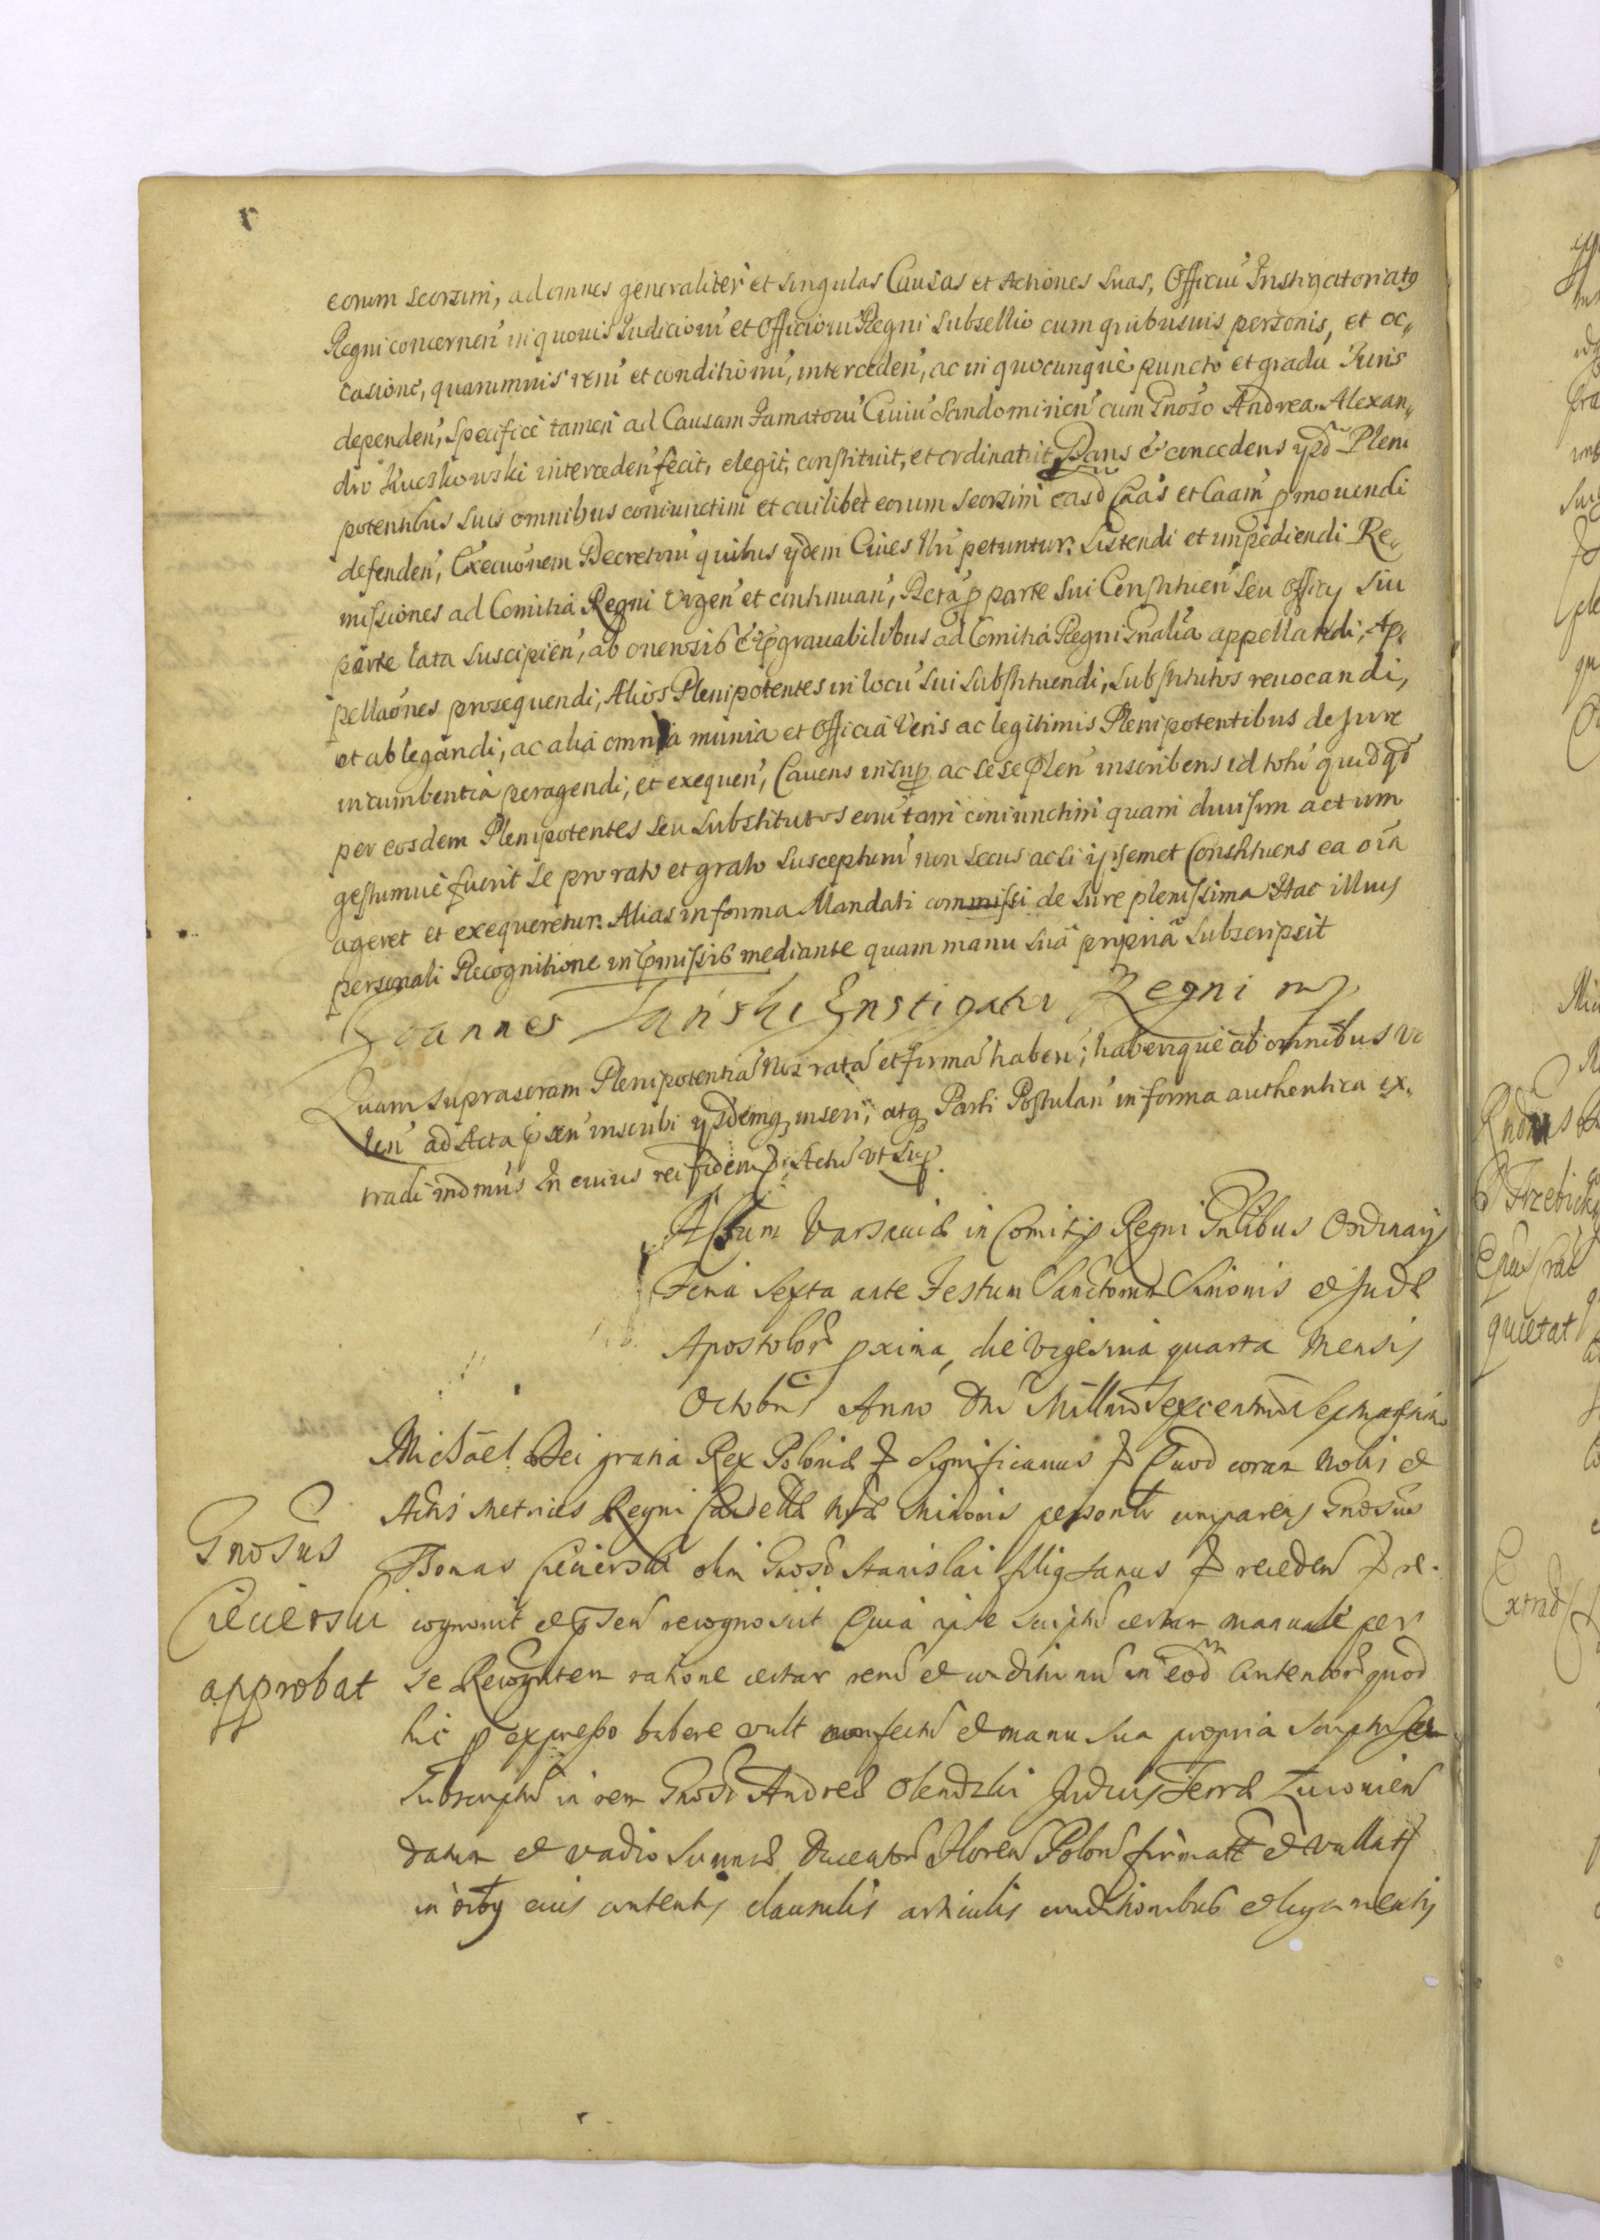 eorum seorsim, ad omnes generaliter et singulas Causas et Actiones suas, Officiu Instigatoriatq
Regni concernen in quovis Judicioru et Officioru Regni subsellio cum quibusvis personis, et oc„
casione, quarumvis reru et conditionu, interceden, ac in quocunque puncto et gradu Juris
dependen, specifice tamen ad Causam Famatoru Civiu Sandomirien cum Gnoso Andrea Alexan„
dro Kuczkowski interceden fecit, elegit, constituit, et ordinavit Dans & concedens ysd Pleni
potentibus suis omnibus coniunctim et cuilibet eorum seorsim easd Caas et Caam pmovendi
defenden, Execuonem Decretoru quibus ydem Cives Nri petuntur. Sistendi et impediendi Re„
missiones ad Comitia Regni Urgen et continuan, Acta p parte sui Constituen seu Officy sui
parte lata suscipien, ab onerosis & pgravabilibus ad Comitia Regni Gnalia appellandi, Ap„
pellaones prosequendi, Alios Plenipotentes in locu sui substituendi, substitutos revocandi,
et ablegandi, ac alia omnia munia et Officia veris ac legitimis Plenipotentibus de Jure
incumbentia peragendi, et exequen, Cavens insup ac sese plen inscribens id totu quidqd
per eosdem Plenipotentes seu substitutos eoru tam coniunctim quam divisim actum
gestumve fuerit se pro rato et grato suscepturu non secus ac si ipsemet Constituens ea oia
ageret et exequeretur. Alias in forma Mandati commissi de Jure plenissima Hac illius
personali Recognitione in pmissis mediante quam manu sua propria subscripsit
Joannes Tański Instigator Regni mp
Quam suprascram Plenipotentia Nos rata et firma haben, haberique ab omnibus vo
len ad Acta psen inscribi ysdemq inseri, atq Parti Postulan in forma authentica ex„
tradi mdmus In cuius rei fidem Actu vt Sup.
Actum Varsaviæ in Comitys Regni Gnlibus Ordinarys
Feria Sexta ante Festum Sanctorum Simonis et Judæ
Apostolor pxima, die Vigesima quarta Mensis
Octobris Anno Dni Millmo Sexcentmo Septuagesimo
Michael Dei gratia Rex Poloniæ Significamus Quod coram Nobis et
Actis Metrices Regni Cancellæ Nræ Minoris personlr comparens Gnosus
Gnosus
Ciecierski
approbat
Thomas Ciecierski olim Gnosi Stanislai filig Sanus receden re„
cognovit et p sen recognoscit Quia ipse scriptu certum manuale per
se Recognitem ratione certar reru et conditionu in eod contentor quod
hic p expresso habere vult confectu et manu sua propria scriptu
Subscriptu in rem Gnosi Andreæ Olendzki Judicis Terræ Lucovien
datum et vadio summæ Ducentor Floren Polon firmatu et vallatu
in oibq eius contentis clausulis articulis conditionibus et ligamentis
Trzebicki
quietat
Extrad